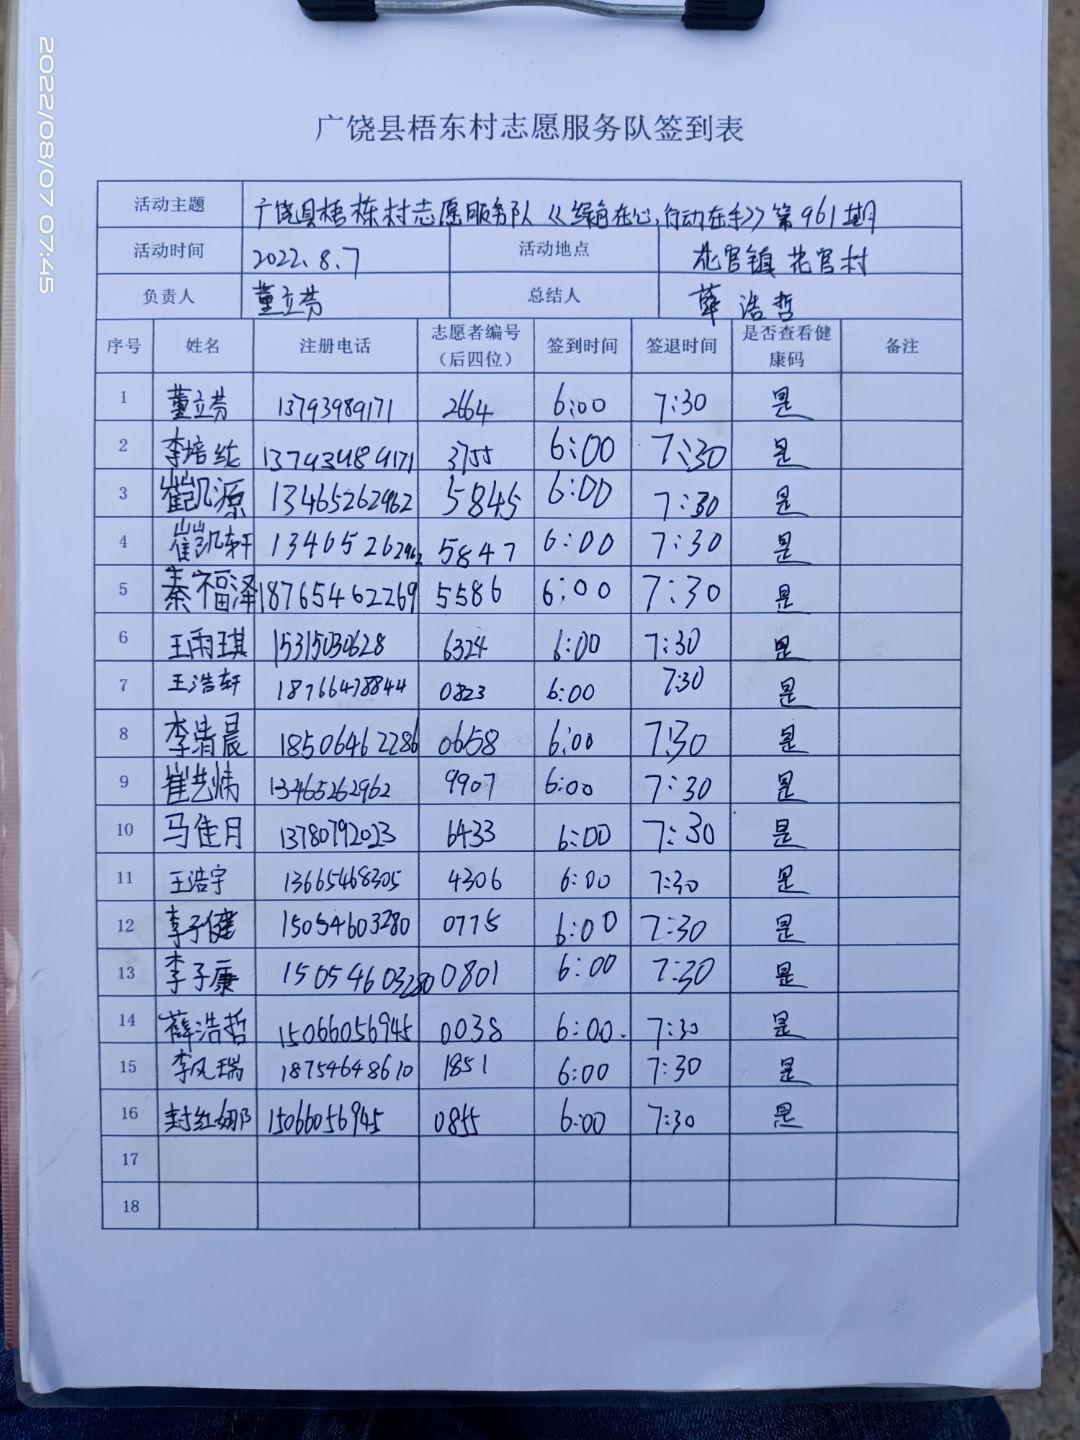 2022/08/07 07:45
广饶县梧东村志愿服务队签到表
活动主题 广饶县梧栋村志愿服务队《绿色在心,行动在手》第961期
活动时间 2022.8.7 活动地点 花官镇花官村
负责人 董立芬 总结人 薛浩哲
序号 姓名 注册电话 志愿者编号（后四位） 签到时间 签退时间 是否查看健康码 备注
1 董立芬 13793989171 2664 6:00 7:30 是
2 李培纮 13793989171 3755 6:00 7:30 是
3 崔凯源 13465262962 5845 6:00 7:30 是
4 崔凯轩 13465262962 5847 6:00 7:30 是
5 秦福泽 18765462269 5586 6:00 7:30 是
6 王雨琪 15315030628 6324 6:00 7:30 是
7 王浩轩 18766478844 0823 6:00 7:30 是
8 李清晨 18506462286 0658 6:00 7:30 是
9 崔艺炳 13465262962 9907 6:00 7:30 是
10 马佳月 13780792023 6433 6:00 7:30 是
11 王浩宇 13665468305 4306 6:00 7:30 是
12 李子健 15054603280 0775 6:00 7:30 是
13 李子康 15054603280 0801 6:00 7:30 是
14 薛浩哲 15066056945 0038 6:00. 7:30 是
15 李风瑞 18754648610 1851 6:00 7:30 是
16 封红娜 15066056945 0855 6:00 7:30 是
17
18